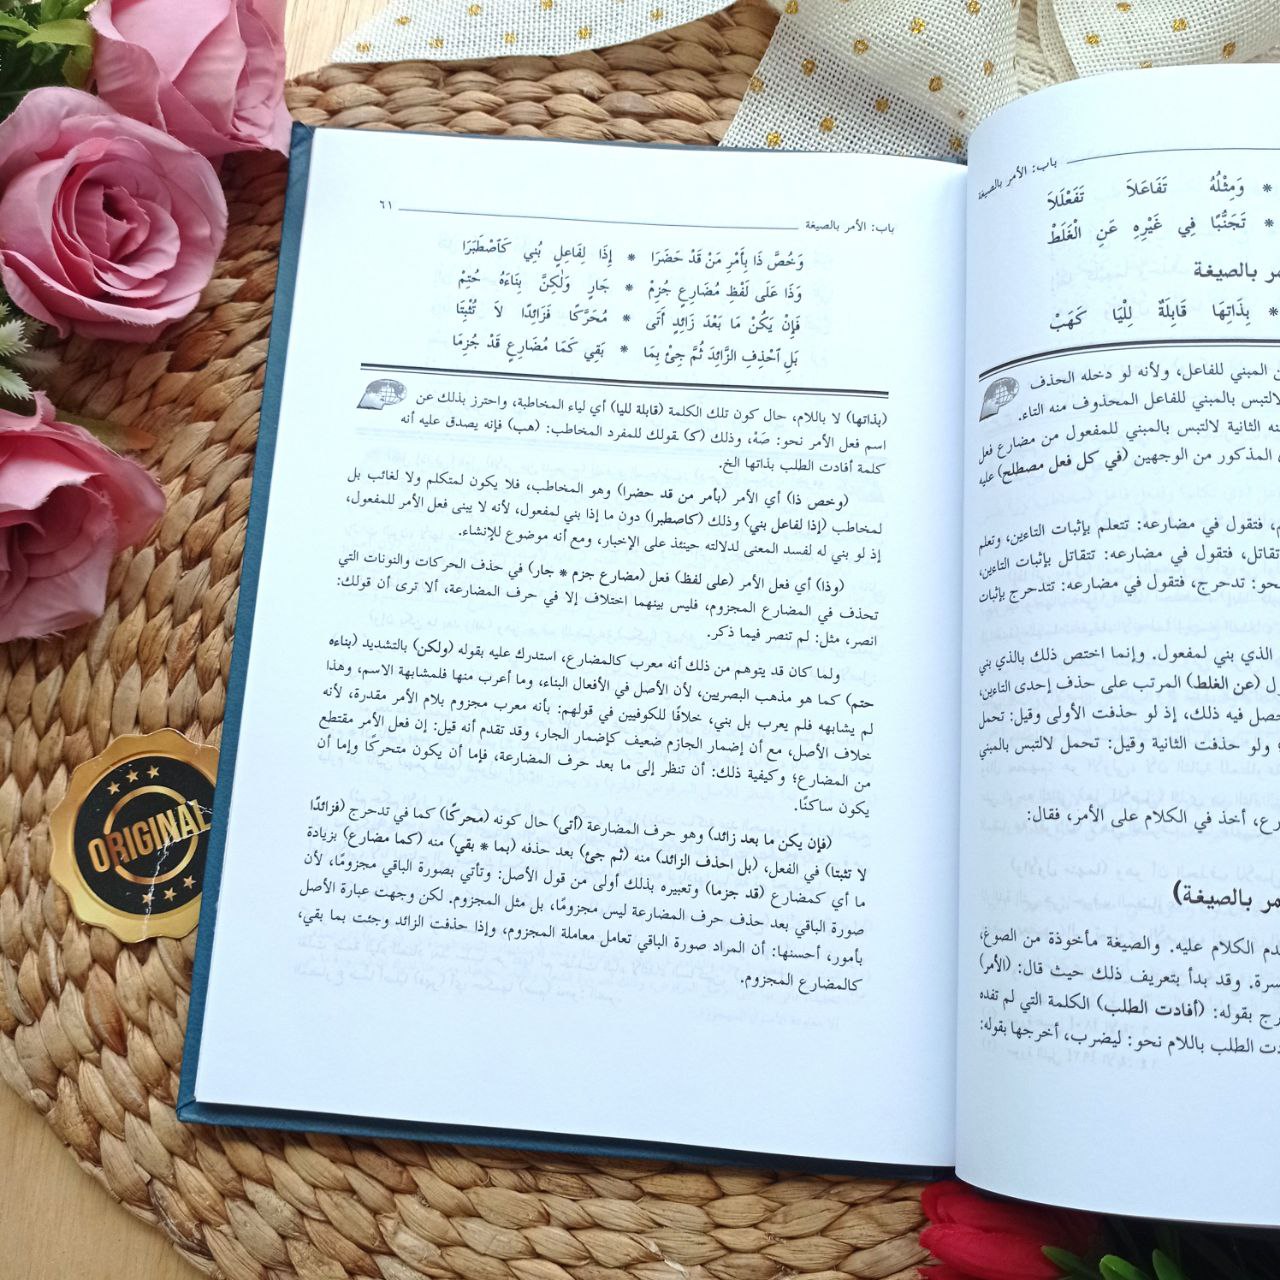 باب: الأمر بالصيغة
٦١
وَخُصَّ ذَا بِأَمْرِ مَنْ قَدْ حَضَرَا * إِذَا لِفَاعِلٍ بُنِي كَاَصْطَبَرَا
وَذَا عَلَى لَفْظِ مُضَارِعٍ جُزِمْ * جَارٍ وَلٰكِنَّ بِنَاءَهُ حُتِمْ
فَإِنْ يَكُنْ مَا بَعْدَ زَائِدٍ أَتَى * مُحَرَّكًا فَزَائِدًا لاَ تُثْبِتَا
بَلِ اَحْذِفِ الزَّائِدَ ثُمَّ جِئْ بِمَا * بَقِي كَمَا مُضَارِعٍ قَدْ جُزِمَا
(بذاتها) لا باللام، حال كون تلك الكلمة (قابلة لليا) أي لياء المخاطبة، واحترز بذلك عن
اسم فعل الأمر نحو: صَهْ، وذلك (كـ) ـقولك للمفرد المخاطب: (هب) فإنه يصدق عليه أنه
كلمة أفادت الطلب بذاتها الخ.
(وخص ذا) أي الأمر (بأمر من قد حضرا) وهو المخاطب، فلا يكون لمتكلم ولا لغائب بل
لمخاطب (إذا لفاعل بني) وذلك (كاصطبرا) دون ما إذا بني لمفعول، لأنه لا يبنى فعل الأمر للمفعول،
إذ لو بني له لفسد المعنى لدلالته حينئذ على الإخبار، ومع أنه موضوع للإنشاء.
(وذا) أي فعل الأمر (على لفظ) فعل (مضارع جزم * جار) في حذف الحركات والنونات التي
تحذف في المضارع المجزوم، فليس بينهما اختلاف إلا في حرف المضارعة، ألا ترى أن قولك:
انصر، مثل: لم تنصر فيما ذكر.
ولما كان قد يتوهم من ذلك أنه معرب كالمضارع، استدرك عليه بقوله (ولكن) بالتشديد (بناءه
حتم) كما هو مذهب البصريين، لأن الأصل في الأفعال البناء، وما أعرب منها فلمشابهة الاسم، وهذا
لم يشابهه فلم يعرب بل بني، خلافًا للكوفيين في قولهم: بأنه معرب مجزوم بلام الأمر مقدرة، لأنه
خلاف الأصل، مع أن إضمار الجازم ضعيف كإضمار الجار، وقد تقدم أنه قيل: إن فعل الأمر مقتطع
من المضارع؛ وكيفية ذلك: أن تنظر إلى ما بعد حرف المضارعة، فإما أن يكون متحركًا وإما أن
يكون ساكنًا.
(فإن يكن ما بعد زائد) وهو حرف المضارعة (أتى) حال كونه (محركًا) كما في تدحرج (فزائدًا
لا تثبتا) في الفعل، (بل احذف الزائد) منه (ثم جئ) بعد حذفه (بما * بقي) منه (كما مضارع) بزيادة
ما أي كمضارع (قد جزما) وتعبيره بذلك أولى من قول الأصل: وتأتي بصورة الباقي مجزومًا، لأن
صورة الباقي بعد حذف حرف المضارعة ليس مجزومًا، بل مثل المجزوم. لكن وجهت عبارة الأصل
بأمور، أحسنها: أن المراد صورة الباقي تعامل معاملة المجزوم، وإذا حذفت الزائد وجئت بما بقي،
كالمضارع المجزوم.
باب: الأمر بالصيغة
* وَمِثْلُهُ تَفَاعَلاَ تَفَعْلَلاَ
* تَجَنُّبًا فِي غَيْرِهِ عَنِ الْغَلَطْ
بالصيغة
* بِذَاتِهَا قَابِلَةٌ لِلْيَا كَهَبْ
المبني للفاعل، ولأنه لو دخله الحذف
لالتبس بالمبني للفاعل المحذوف منه التاء.
الثانية لالتبس بالمبني للمفعول من مضارع فعل
المذكور من الوجهين (في كل فعل مصطلح) عليه
فتقول في مضارعه: تتعلم بإثبات التاءين، وتعلم
تقاتل، فتقول في مضارعه: تتقاتل بإثبات التاءين،
نحو: تدحرج، فتقول في مضارعه: تتدحرج بإثبات
الذي بني لمفعول. وإنما اختص ذلك بالذي بني
(عن الغلط) المرتب على حذف إحدى التاءين،
فيه ذلك، إذ لو حذفت الأولى وقيل: تحمل
ولو حذفت الثانية وقيل: تحمل لالتبس بالمبني
أخذ في الكلام على الأمر، فقال:
بالصيغة)
الكلام عليه. والصيغة مأخوذة من الصوغ،
وقد بدأ بتعريف ذلك حيث قال: (الأمر)
بقوله: (أفادت الطلب) الكلمة التي لم تفده
الطلب باللام نحو: ليضرب، أخرجها بقوله:
ORIGINAL